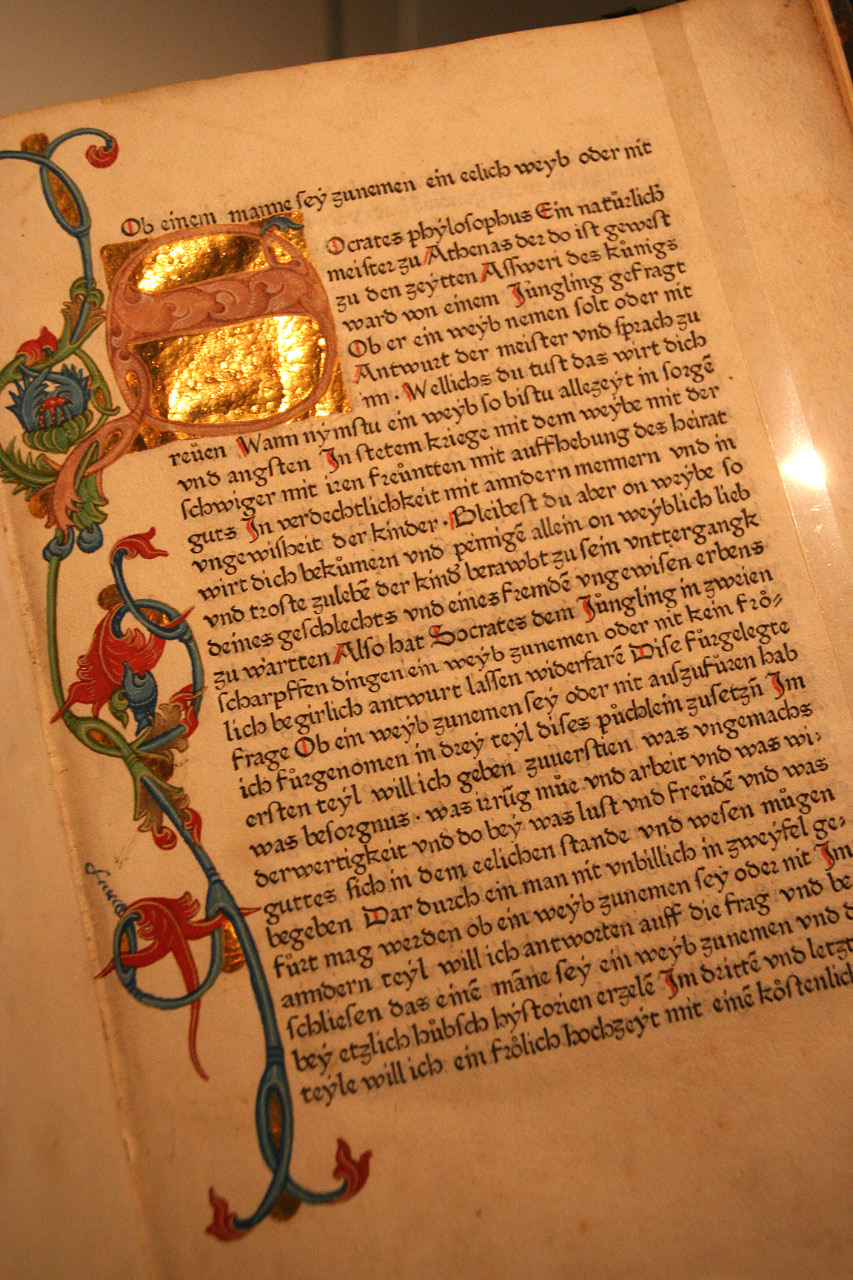 Ob einem manne seÿ zunemen ein eelich weyb oder nit
S Ocrates phÿlosophus Ein natůrlich
meister zu Athenas der do ist gewest
zu den zeÿtten Assweri des kůnigs
ward von einem Jůngling gefragt
Ob er ein weÿb nemen solt oder nit
Antwurt der meister vnd sprach zu
im · Wellichs du tust das wirt dich
reůen Wann nÿmstu ein weÿb so bistu allezeÿt in sorgē
vnd angsten In stetem kriege mit dem weÿbe mit der
schwiger mit iren freůntten mit auffhebung des heirat
guts In verdechtlichkeit mit anndern mennern vnd in
vngewisheit der kinder · Bleibest du aber on weÿbe so
wirt dich bekůmern vnd peinigē allein on weÿblich lieb
vnd troste zulebē der kind berawbt zu sein vnttergangk
deines geschlechts vnd eines fremdē vngewisen erbens
zu wartten Also hat Socrates dem Jůngling in zweien
scharpffen dingen ein weÿb zunemen oder nit kein frő⸗
lich begirlich antwurt lassen widerfarē Dise fůrgelegte
frage Ob ein weÿb zunemen seÿ oder nit auszufůren hab
ich fůrgenomen in dreÿ teÿl dises půchlein zusetzn̄ Im
ersten teÿl will ich geben zuuerstien was vngemachs
was besorgnus · was irrūg můe vnd arbeit vnd was wi⸗
derwertigkeit vnd do beÿ was lust vnd freůdē vnd was
guttes sich in dem eelichen stande vnd wesen můgen
begeben Dar durch ein man nit vnbillich in zweÿfel ge⸗
fůrt mag werden ob ein weÿb zunemen seÿ oder nit Im
anndern teÿl will ich antworten auff die frag vnd be
schliesen das einē māne seÿ ein weÿb zunemen vnd d
beÿ etzlich hůbsch hÿstorien erzelē Im drittē vnd letzt
teÿle will ich ein frőlich hochzeÿt mit einē kőstenlich